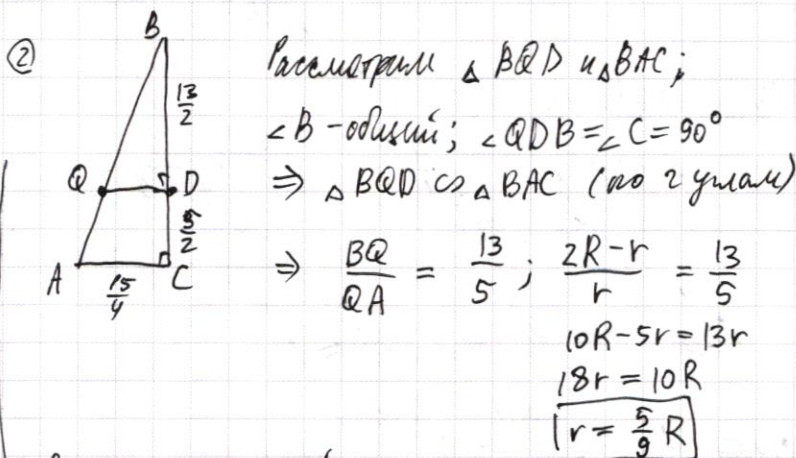 ②
B
13/2
Q
D
5/2
A
15/4
C
Рассмотрим △ BQD и △ BAC;
∠B - общий; ∠QDB = ∠C = 90°
⇒ △ BQD ∽ △ BAC (по 2 углам)
⇒ BQ/QA = 13/5 ; (2R - r)/r = 13/5
10R - 5r = 13r
18r = 10R
r = 5/9 R